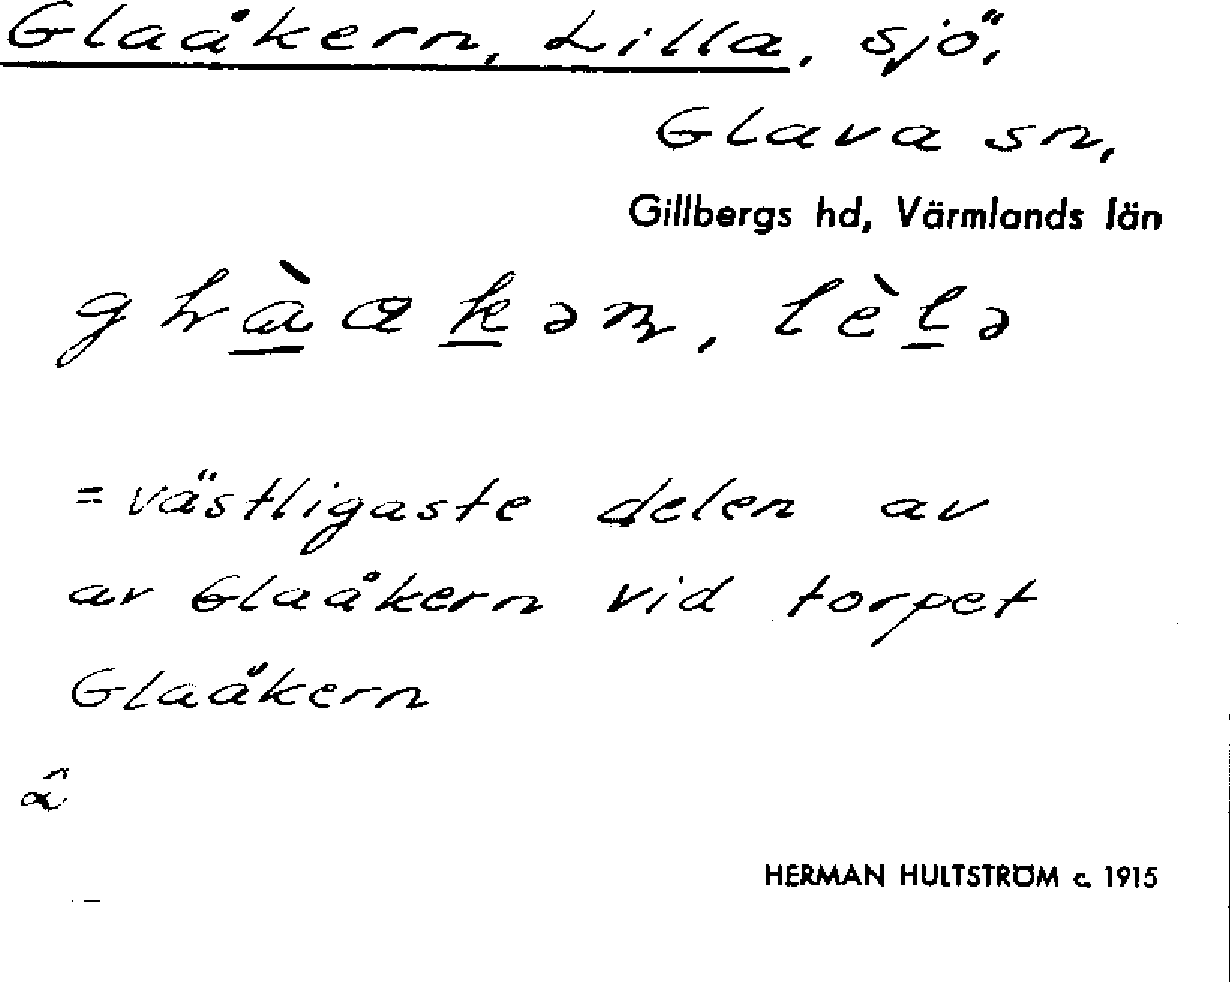 Glaåkern, Lilla, sjö,
Glava sn,
Gillbergs hd, Värmlands län
lèlə
= västligaste delen av
av Glaåkern vid torpet
Glaåkern
HERMAN HULTSTRÖM c. 1915